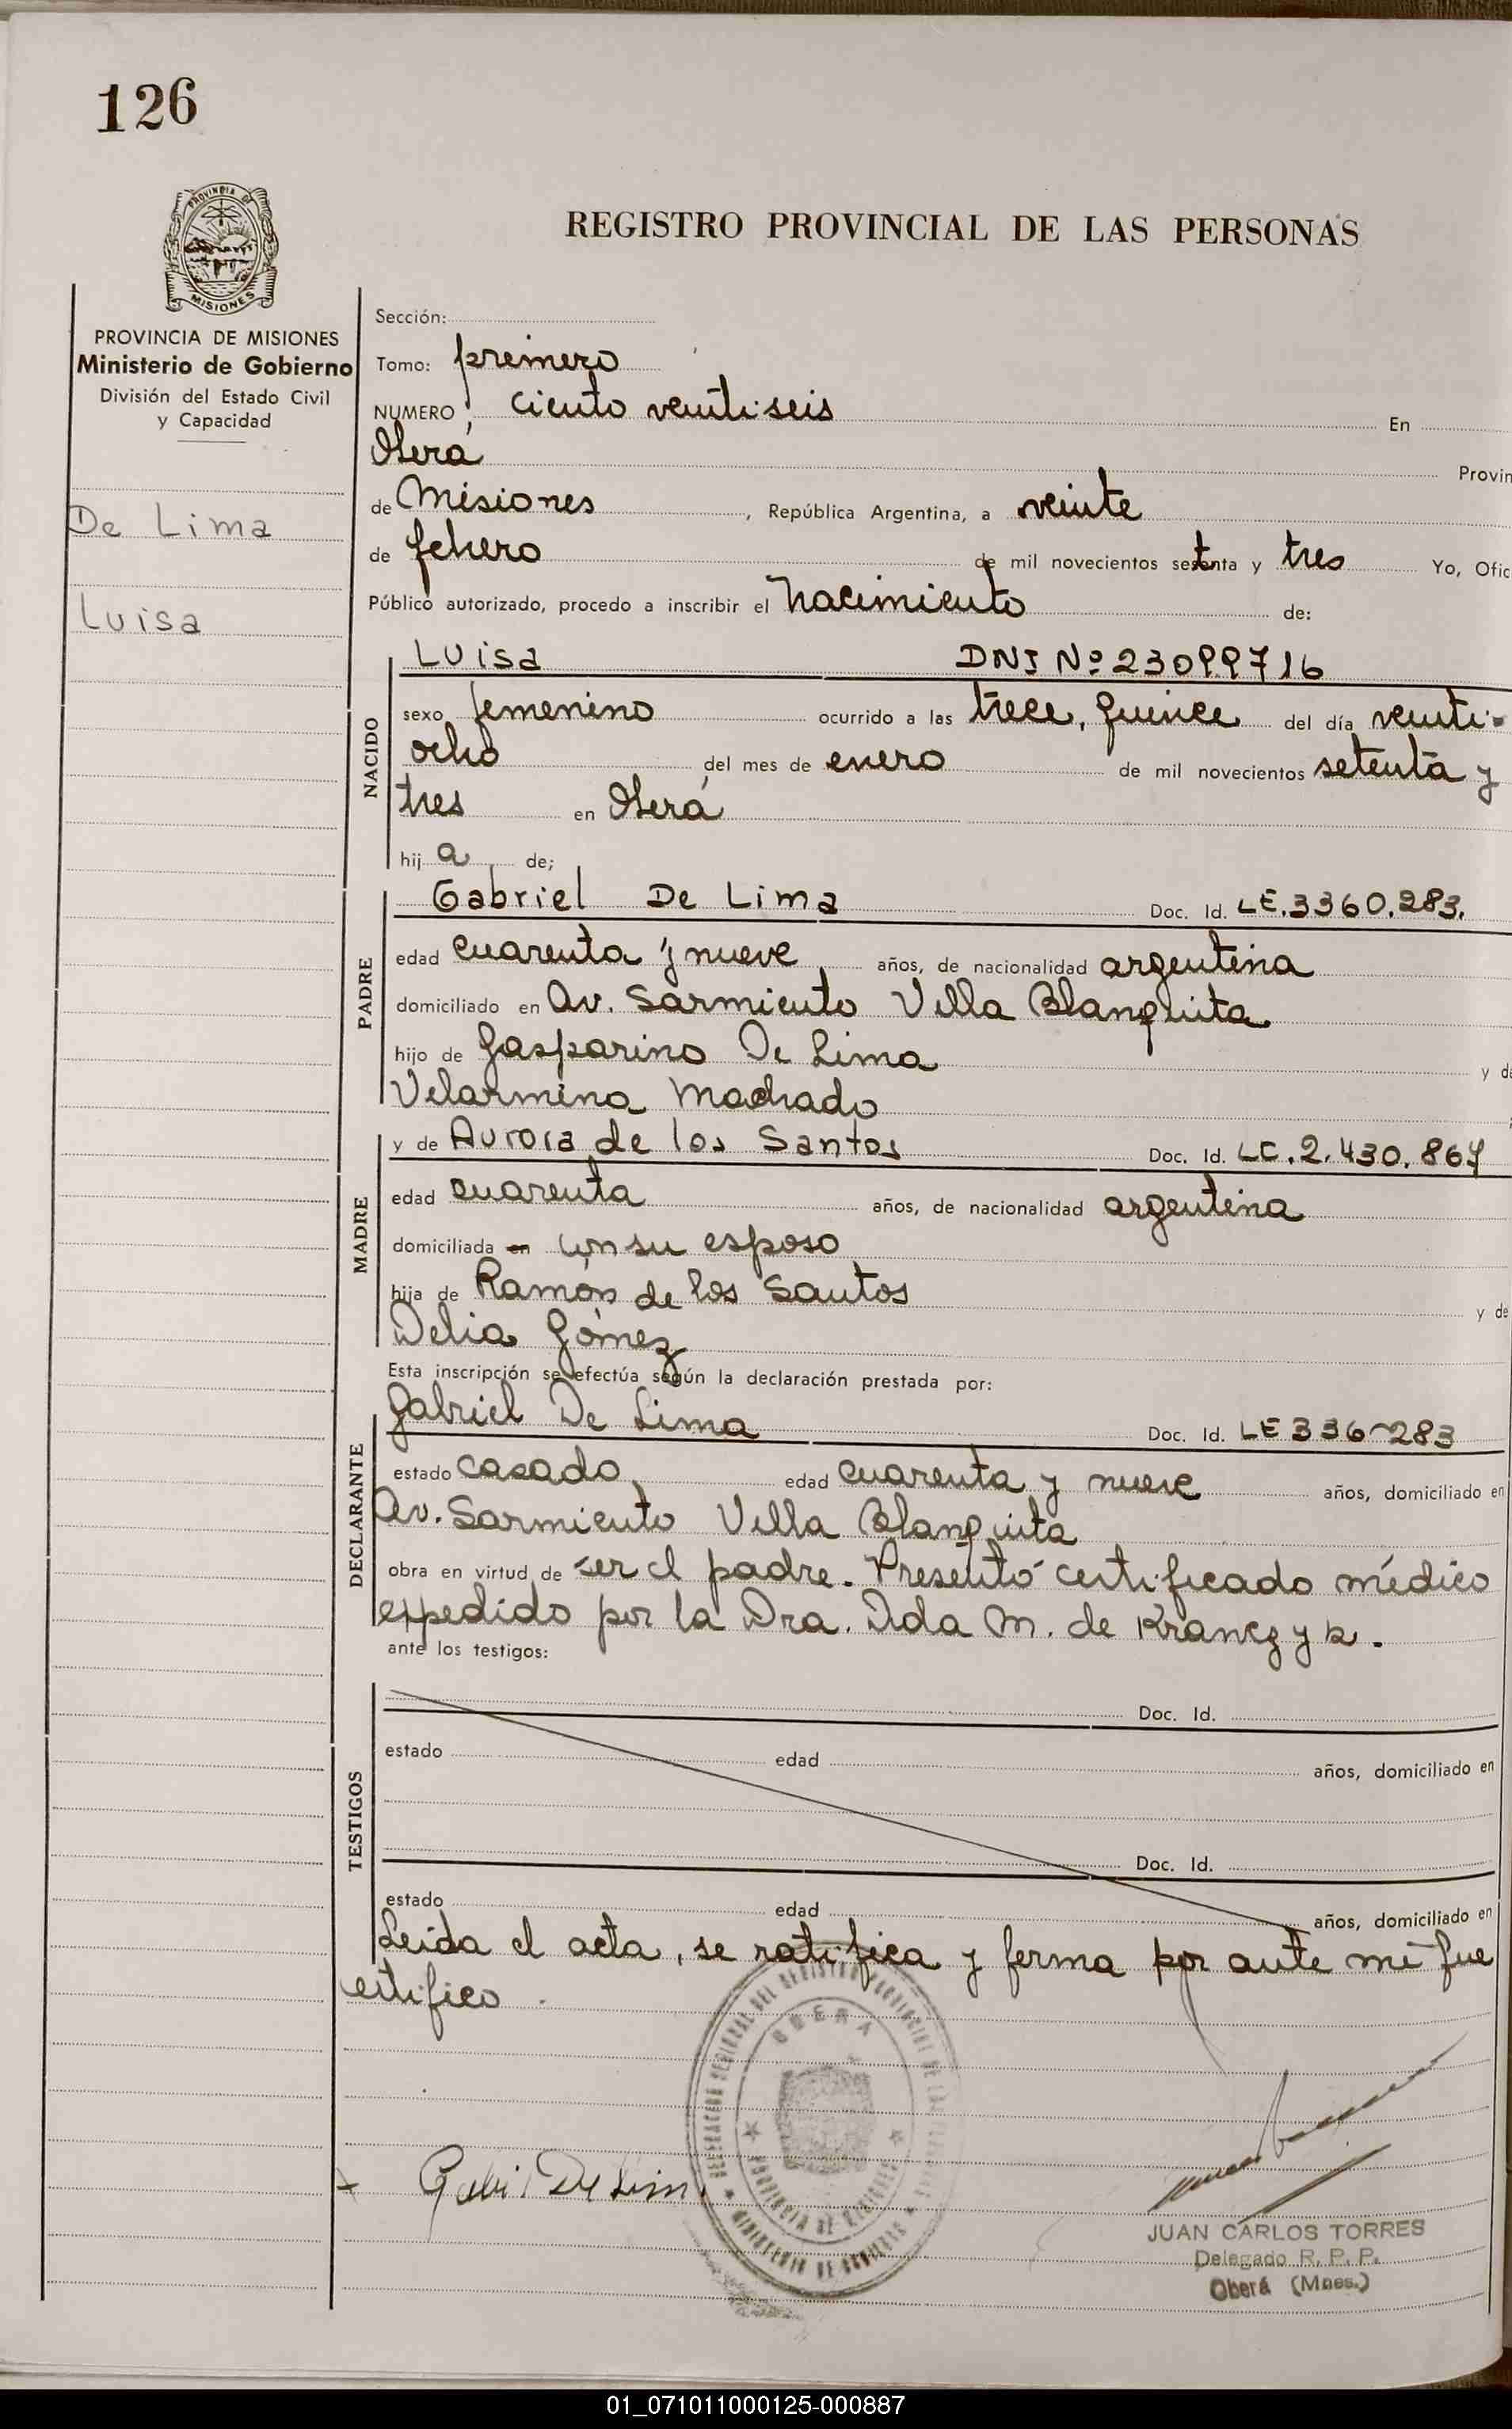 126
PROVINCIA DE
MISIONES
REGISTRO PROVINCIAL DE LAS PERSONAS
PROVINCIA DE MISIONES
Ministerio de Gobierno
División del Estado Civil
y Capacidad
De Lima
Luisa
Sección:
Tomo: primero
NUMERO ciento veintiseis En
Oberá Provin
de Misiones, República Argentina, a veinte
de febrero de mil novecientos setenta y tres Yo, Ofic
Público autorizado, procedo a inscribir el nacimiento de:
NACIDO
Luisa DNI Nº 23099716
sexo femenino ocurrido a las trece, quince del día veinti-
ocho del mes de enero de mil novecientos setenta y
tres en Oberá
hij a de;
PADRE
Gabriel De Lima Doc. Id. LE.3360.283.
edad cuarenta y nueve años, de nacionalidad argentina
domiciliado en Av. Sarmiento Villa Blanquita
hijo de Gasparino De Lima y de
Velarmina Machado
MADRE
y de Aurora de los Santos Doc. Id. LC.2.430.867
edad cuarenta años, de nacionalidad argentina
domiciliada en con su esposo
hija de Ramón de los Santos y de
Delia Gómez
Esta inscripción se efectúa según la declaración prestada por:
DECLARANTE
Gabriel De Lima Doc. Id. LE 336~283
estado casado edad cuarenta y nueve años, domiciliado en
Av. Sarmiento Villa Blanquita
obra en virtud de ser el padre. Presentó certificado médico
expedido por la Dra. Ilda M. de
ante los testigos:
TESTIGOS
Doc. Id.
estado edad años, domiciliado en
Doc. Id.
estado edad años, domiciliado en
Leida el acta, se ratifica y firma por ante mi que
certifico.
REGIONAL DEL REGISTRO PROVINCIAL DE LAS
OBERA
PROVINCIA DE MISIONES
MINISTERIO DE GOBIERNO
JUAN CARLOS TORRES
Delegado R. P. P.
Oberá (Mnes.)
01_071011000125-000887